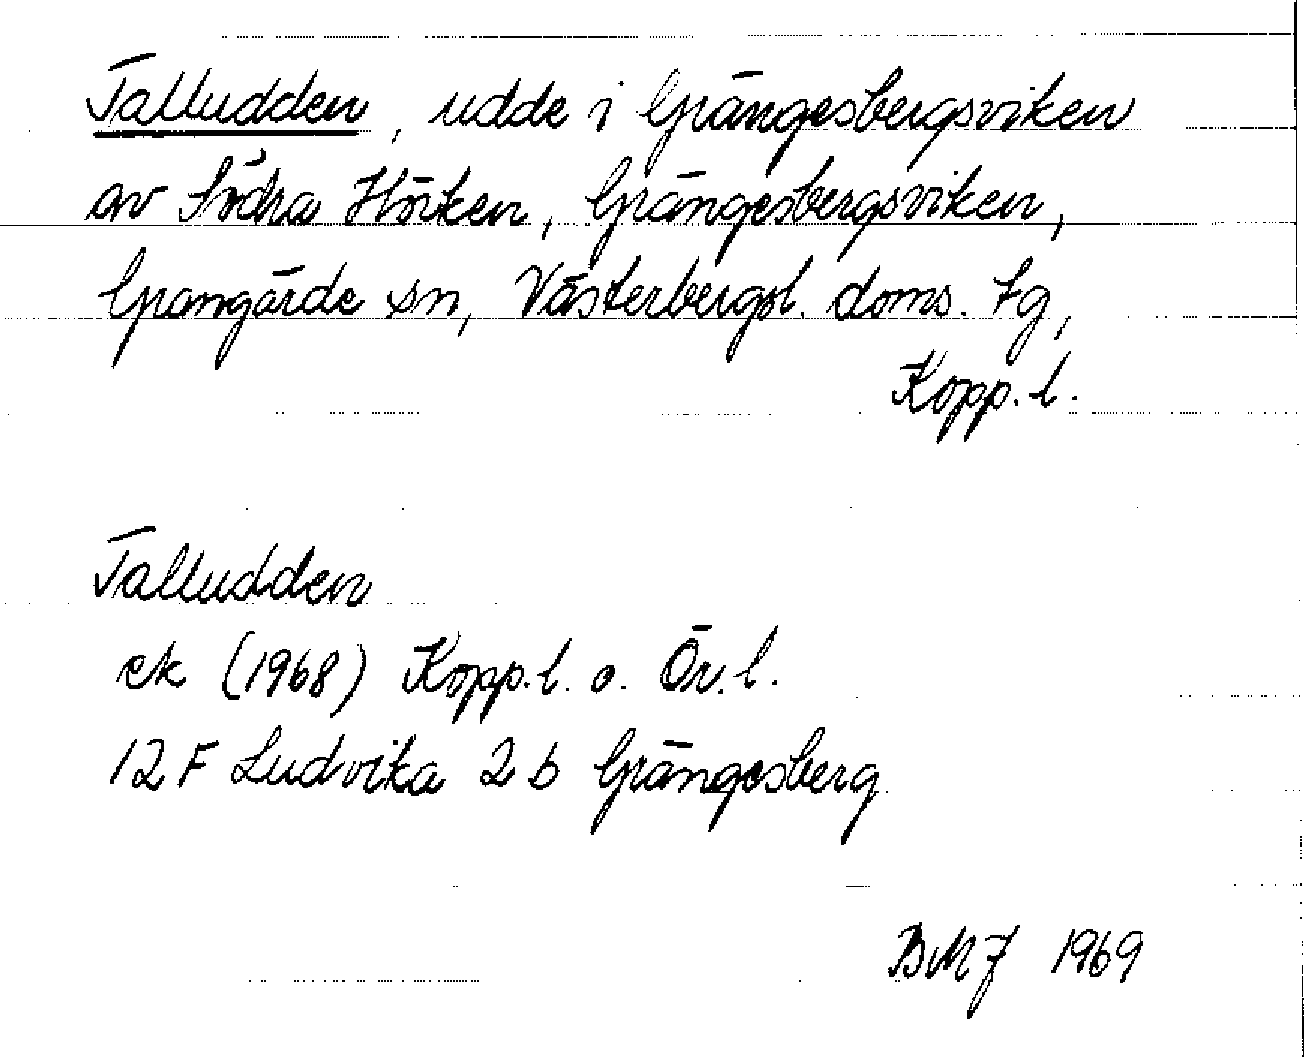 Talludden, udde i Grängesbergsviken
av Södra Hörken, Grängesbergsviken,
Grangärde sn, Västerbergsl. doms. tg,
Kopp. l.
Talludden
ek (1968) Kopp. l. o. Ör. l.
12 F Ludvika 2 b Grängesberg.
BMJ 1969